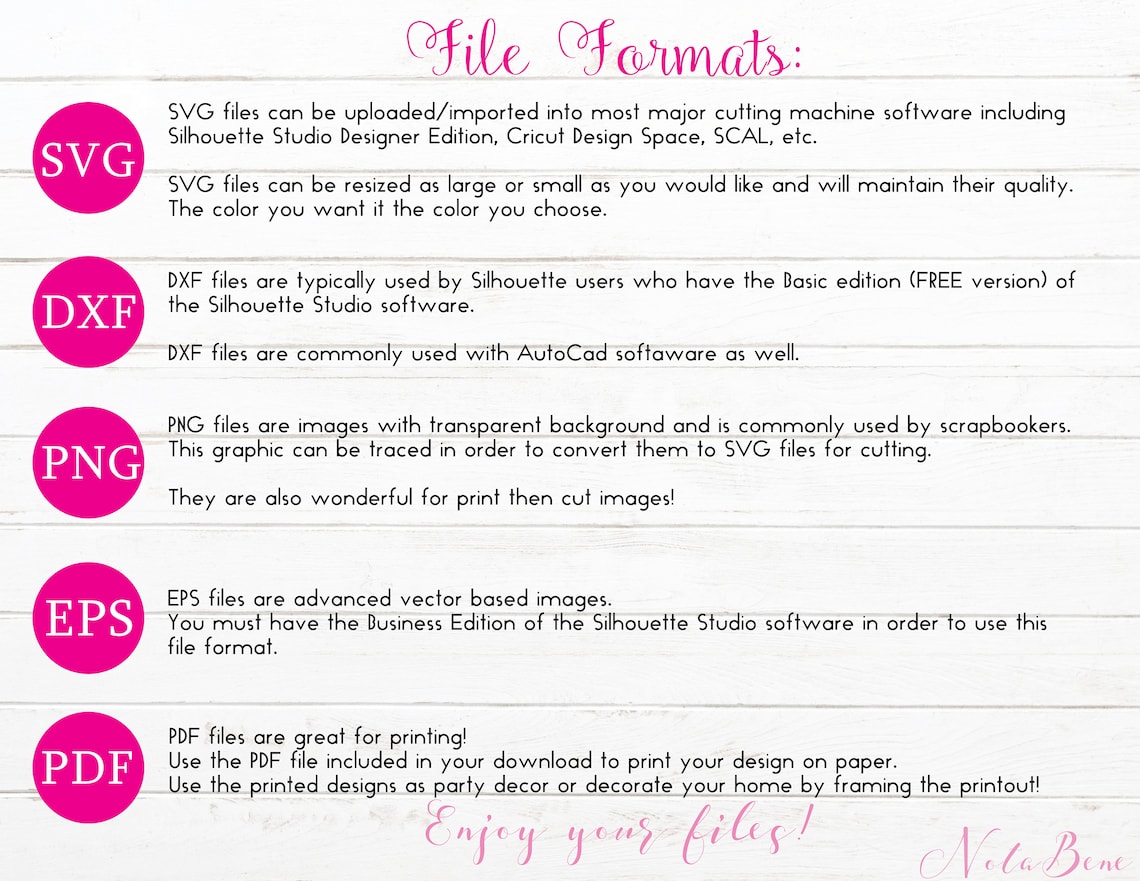 File Formats:
SVG
SVG files can be uploaded/imported into most major cutting machine software including
Silhouette Studio Designer Edition, Cricut Design Space, SCAL, etc.
SVG files can be resized as large or small as you would like and will maintain their quality.
The color you want it the color you choose.
DXF
DXF files are typically used by Silhouette users who have the Basic edition (FREE version) of
the Silhouette Studio software.
DXF files are commonly used with AutoCad softaware as well.
PNG
PNG files are images with transparent background and is commonly used by scrapbookers.
This graphic can be traced in order to convert them to SVG files for cutting.
They are also wonderful for print then cut images!
EPS
EPS files are advanced vector based images.
You must have the Business Edition of the Silhouette Studio software in order to use this
file format.
PDF
PDF files are great for printing!
Use the PDF file included in your download to print your design on paper.
Use the printed designs as party decor or decorate your home by framing the printout!
Enjoy your files!
NotaBene